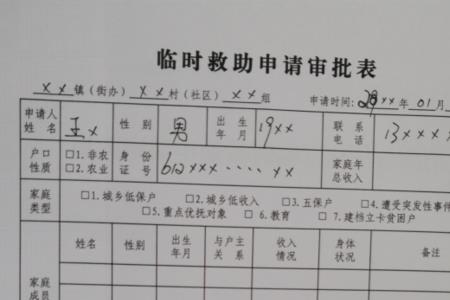 临时救助申请审批表
××镇（街办）××村（社区）××组 申请时间：20××年01月
申请人姓名 王× 性别 男 出生年月 19×× 联系电话 13×××
户口性质 □1.非农 □2.农业 身份证号 612×××·····×× 家庭年总收入
家庭类型 □1.城乡低保户 □2.城乡低收入 □3.五保户 □4.遭受突发性事件
□5.重点优抚对象 □6.教育 □7.建档立卡贫困户
姓名 性别 出生年月 与户主关系 收入情况 身体状况 备注
家庭成员